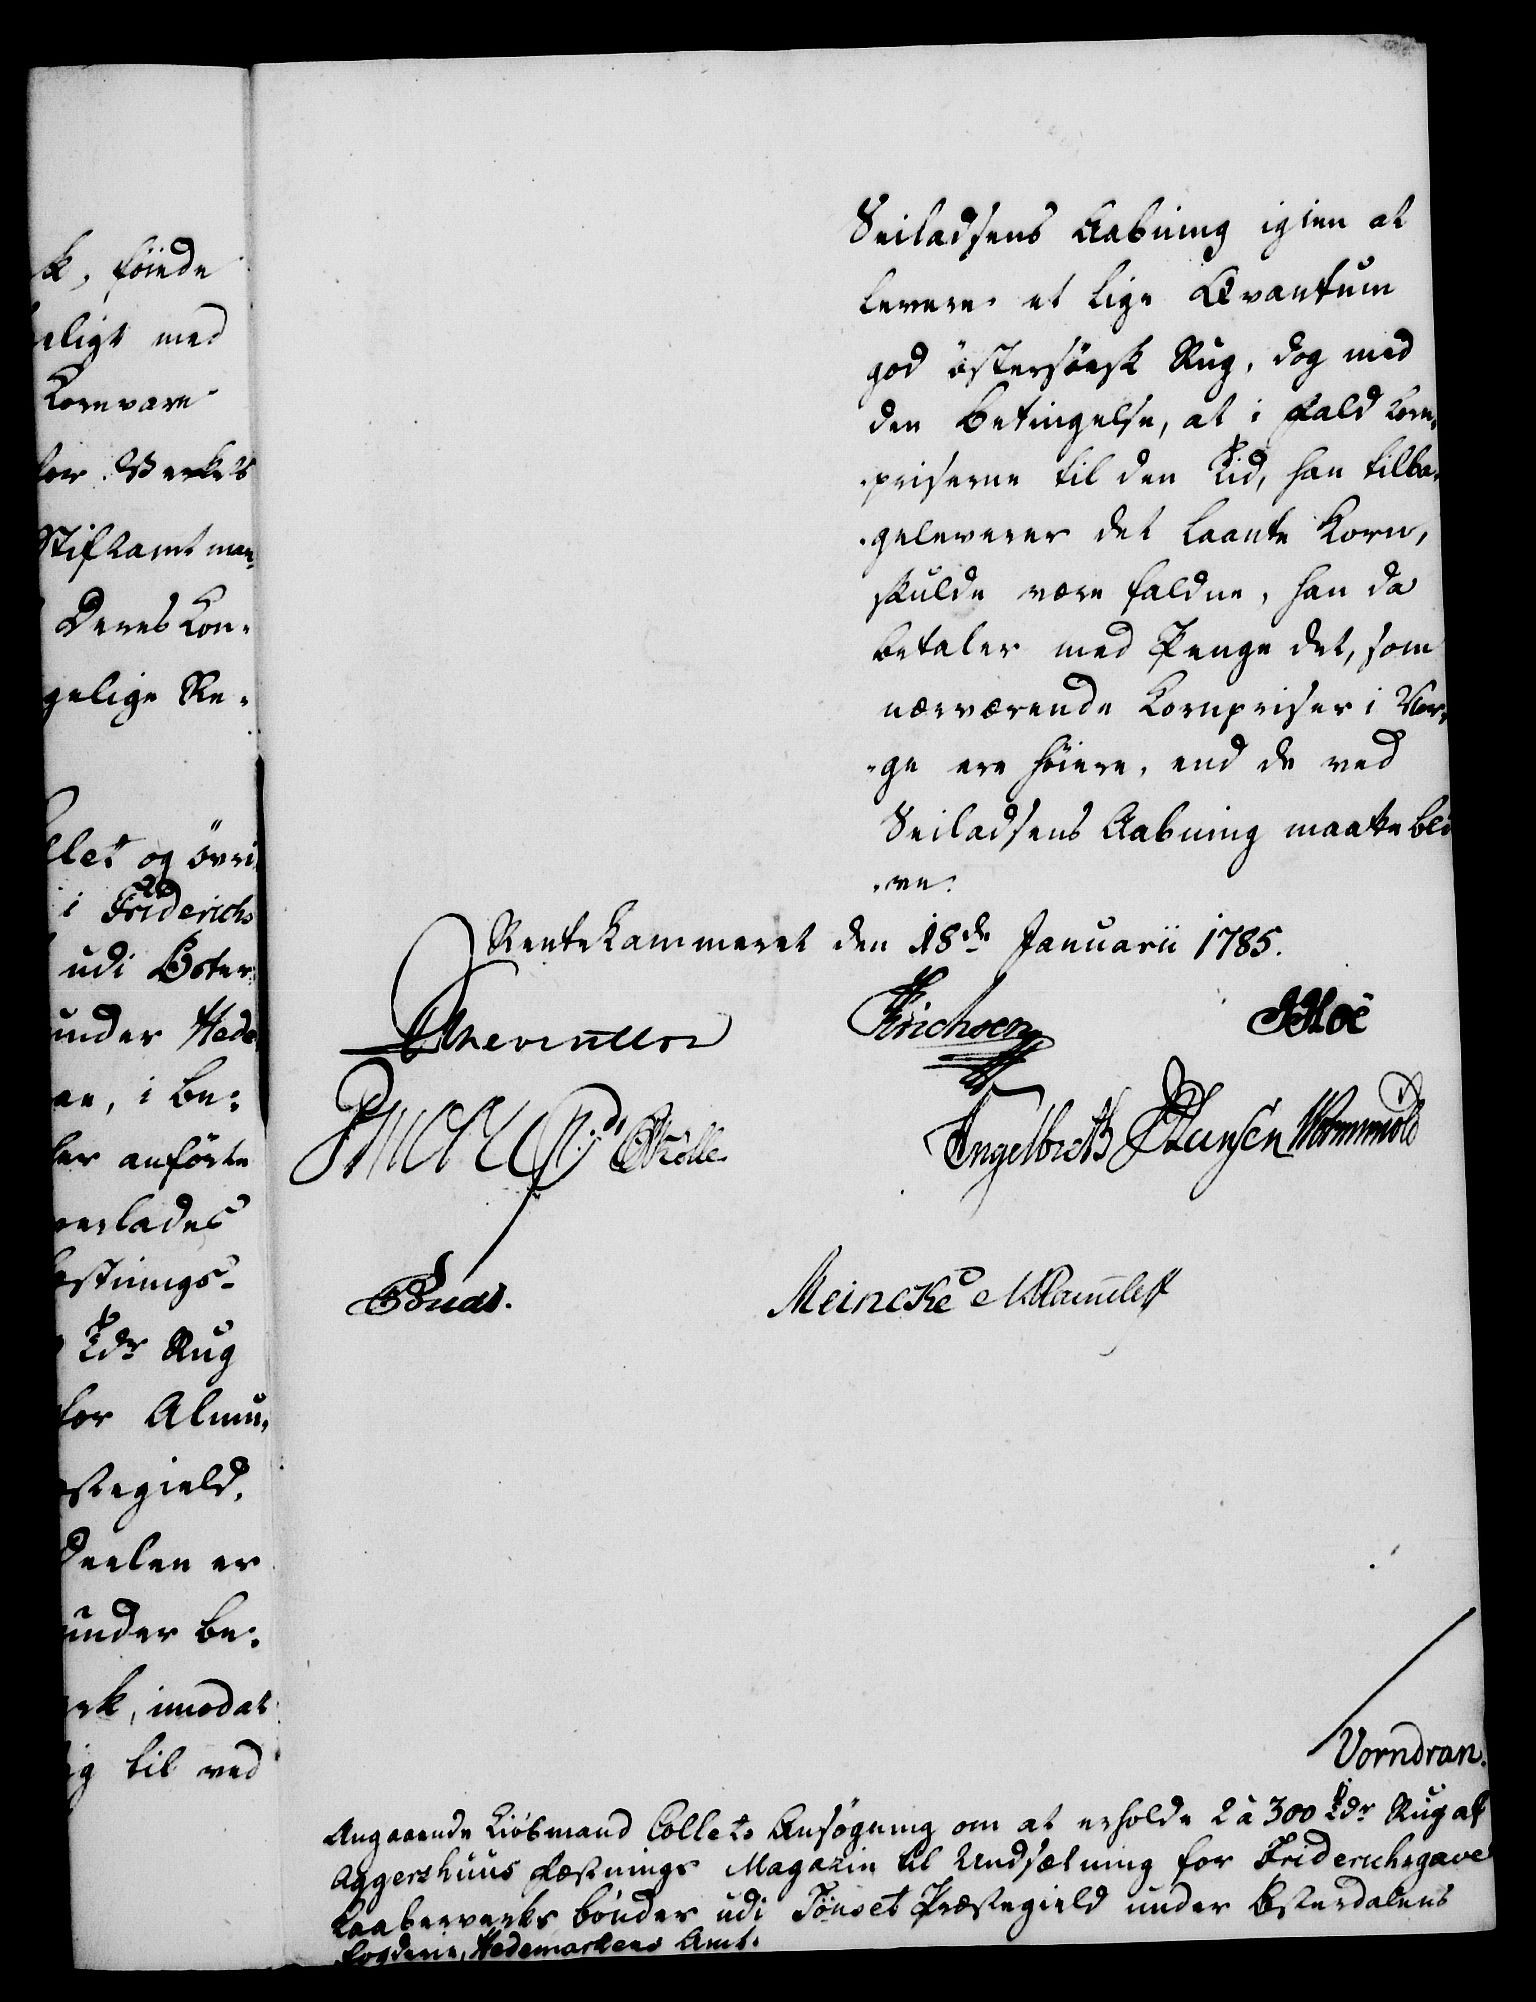 k, föiede
eligt med
Kornvare
for Verkets
Stiftamtman-
Deres Kon-
gelige Re-
llet og övri
i Friderichs
udi Öster-
under Hede
en, i Be-
her anförte
overlades
æstnings-
Tdr Rug
for Almu-
æstegield,
Deelen er
under Be-
erk, imodat
ig til ved
Seiladsens Aabning igien at
levere et lige Qvantum
god östersöesk Rug, dog med
den Betingelse, at i Fald Korn-
priserne til den Tid, han tilba-
geleverer det laante Korn,
skulde være faldne, han da
betaler med Penge det, som
nærværende Kornpriser i Nor-
ge ere höiere, end de ved
Seiladsens Aabning maatte bli-
ve.
Rentekammeret den 18de Januarii 1785.
Erichsen
Engelbreth JHansen Wormskiold
Meincke Rameleff
Vorndran.
Angaaende Kiöbmand Collets Ansögning om at erholde 2 à 300 Tdr Rug af
Aggershuus Fæstnings Magazin til Undsætning for Friderichsgave
Kaaberverks Bönder udi Tönset Præstegield under Österdalens
Fogderie, Hedemarkens Amt.